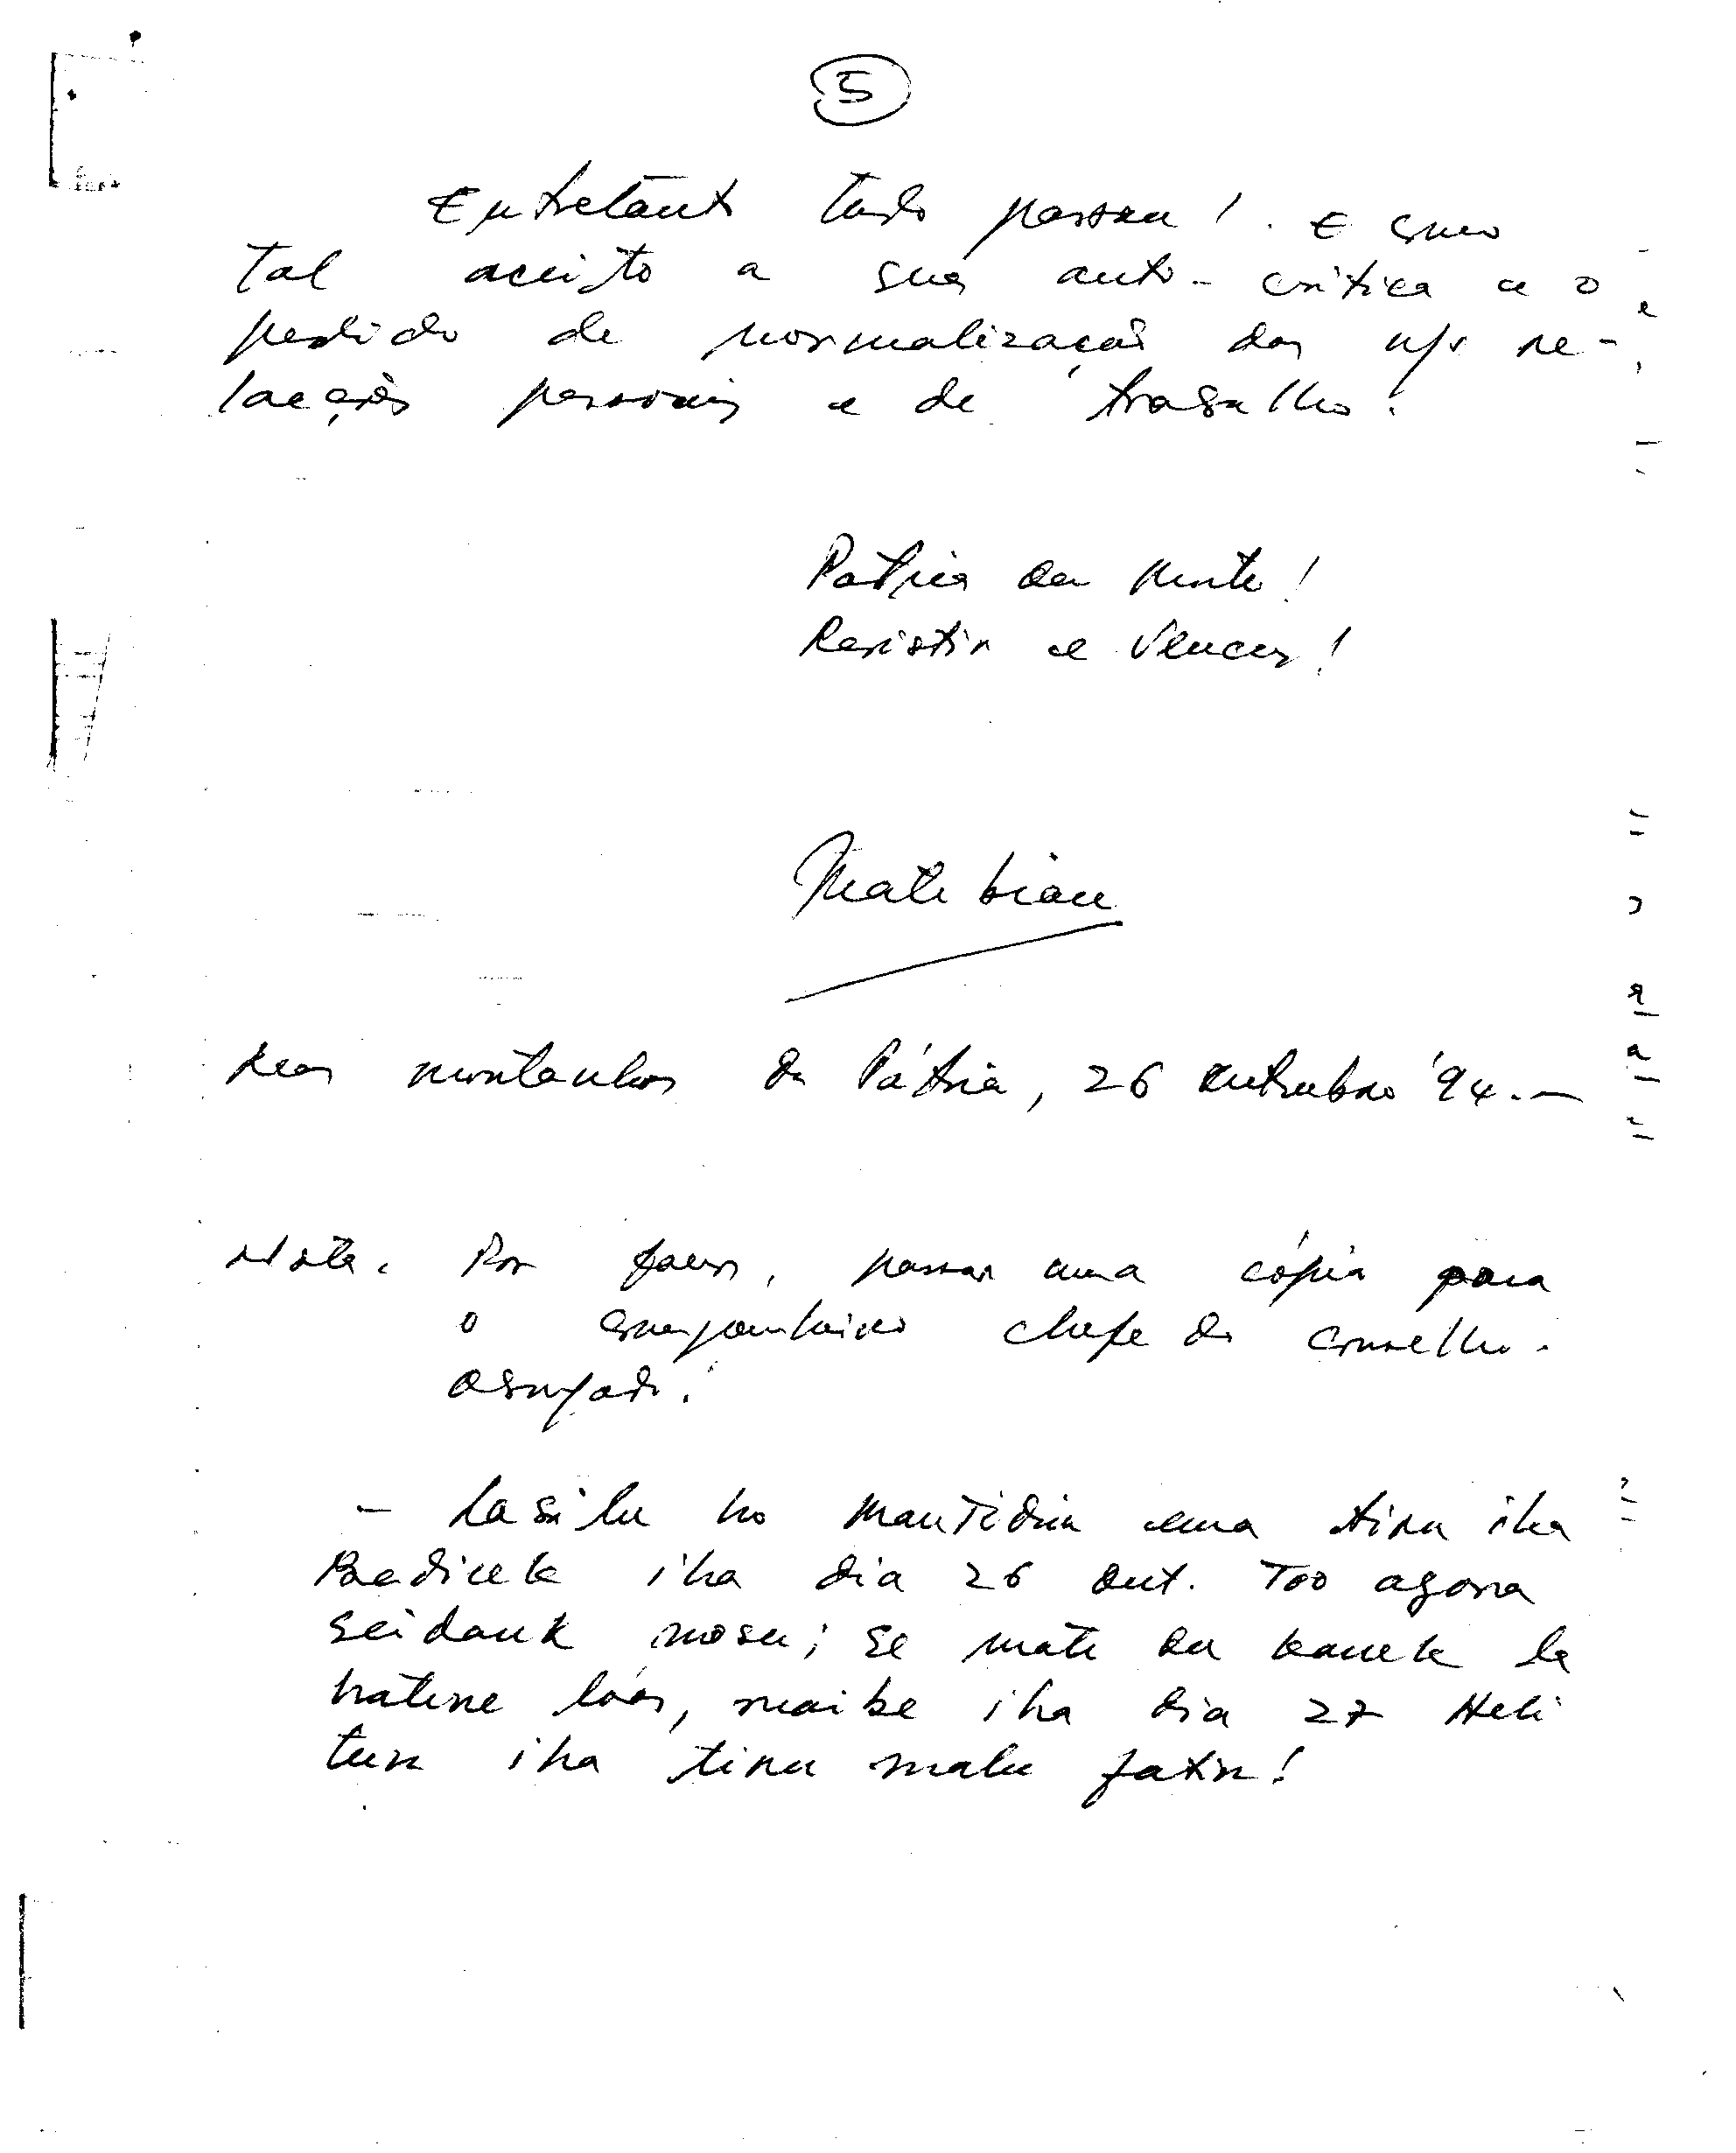 5
Entretanto tudo passou! E como
tal aceito a sua auto-crítica e o
pedido de normalização das n/s re-
lacções pessoais e de trabalho.
Pátria ou Morte!
Resistir e Vencer!
Mate bian
Nas montanhas da Pátria, 26 Outubro '94.-
Nota. Por favor, passar uma cópia para
o companheiro chefe do conselho.
Obrigado.
- Lasilu ho Mautidin ema tiru iha
iha dia 26 Out. Too agora
seidauk mosu; se mate ou kanek la
hatene loos, maibe iha dia 27 Heli
tun iha tiru malu fatin!